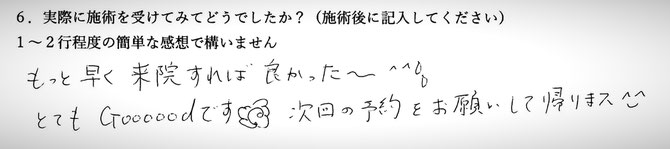 ６．実際に施術を受けてみてどうでしたか？（施術後に記入してください）
１～２行程度の簡単な感想で構いません
もっと早く来院すれば良かった～^^
とてもGooooodです 次回の予約をお願いして帰りまス